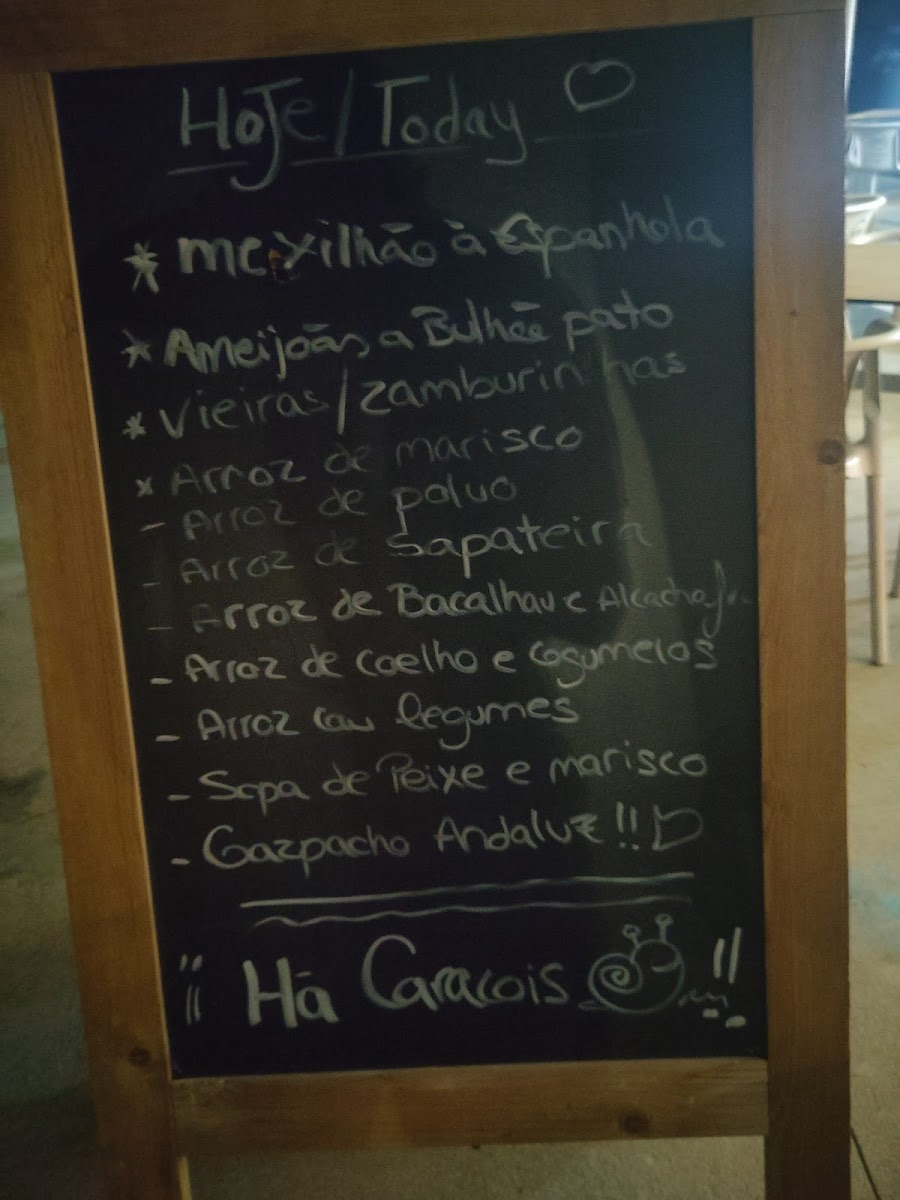 HoJe / Today
* mexilhão à Espanhola
* Ameijoãs a Bulhão pato
* Vieiras / Zamburinhas
* Arroz de marisco
- Arroz de polvo
- Arroz de Sapateira
- Arroz de Bacalhau e
- Arroz de Coelho e Cogumelos
- Arroz com legumes
- Sopa de Peixe e marisco
- Gazpacho Andaluz !!
¡¡ Há Caracois !!